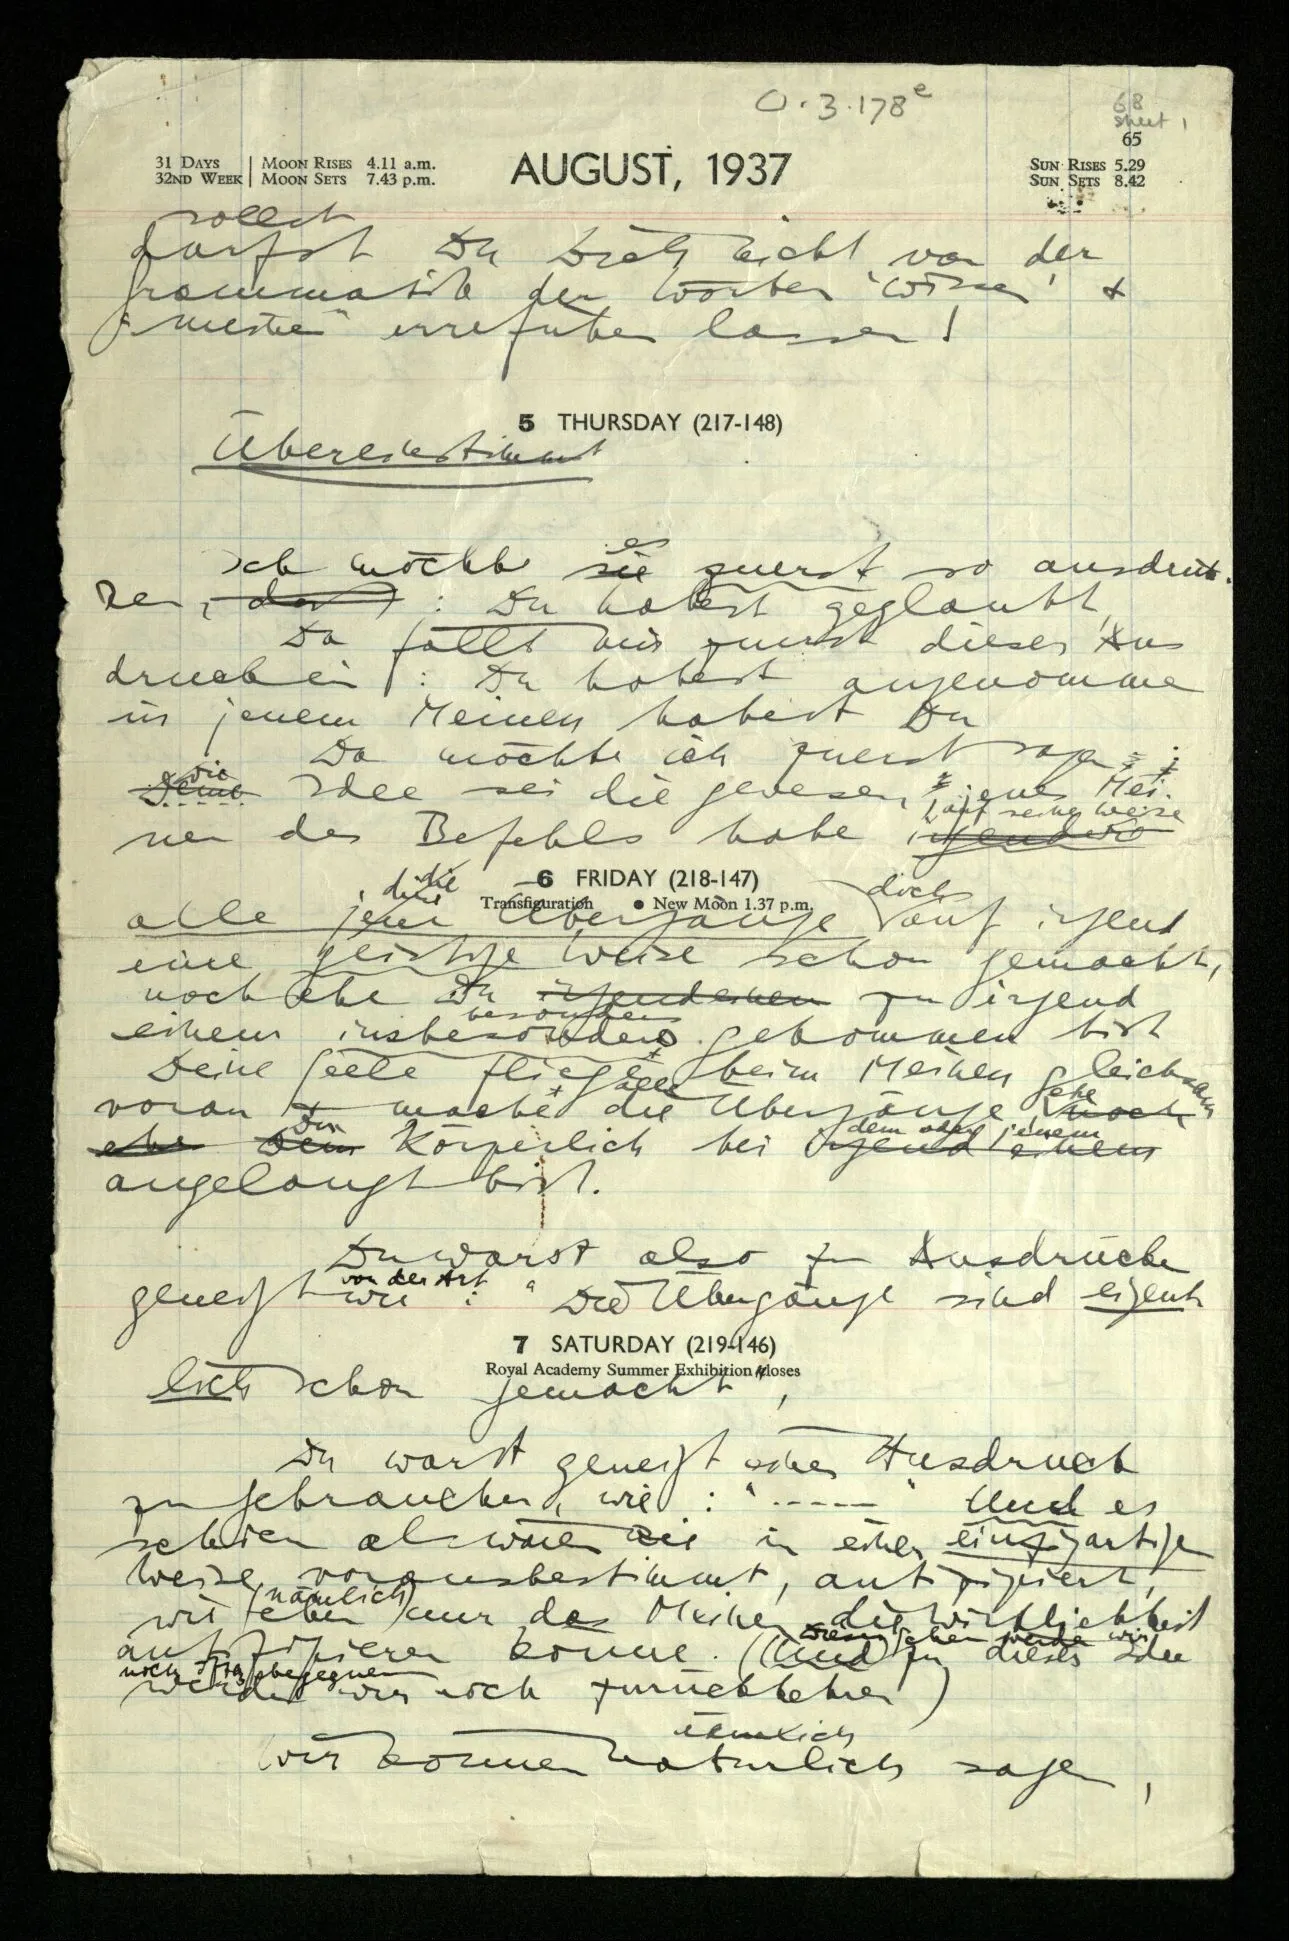 O.3.178e
68
sheet 1
65
31 DAYS
32ND WEEK
MOON RISES 4.11 a.m.
MOON SETS 7.43 p.m.
AUGUST, 1937
SUN RISES 5.29
SUN SETS 8.42
sollst
darfst Du Dich nicht von der
Grammatik der Wörter "wissen" &
"meinen" irreführen lassen!
5 THURSDAY (217-148)
Übereinstimmt
es
Ich möchte sie zuerst so ausdrük-
ken, das: Du habest geglaubt,
Da fällt mir zuerst dieser Aus
druck ein: Du habest angenomme
in jenem Meinen habest Du
Da möchte ich zuerst sagen:
die
Deine Idee sei die gewesen, jenes Mei-
auf seine Weise
nen des Befehls habe irgendwo
6 FRIDAY (218-147)
Transfiguration ● New Moon 1.37 p.m.
die
doch
alle jene Übergänge auf irgend
eine geistige Weise schon gemacht,
noch ehe Du irgendeinem zu irgend
besonders
einem insbesondere gekommen bist
Deine Seele fliege beim Meinen gleichsam
alle
ehe
voran & mache die Übergänge noch
Du
dem oder jenem
ehe Dein Körperlich bei irgend einem
angelangt bist.
Du warst also zu Ausdrücken
von der Art
geneigt wie: "Die Übergänge sind eigent
7 SATURDAY (219-146)
Royal Academy Summer Exhibition closes
lich schon gemacht",
Du warst geneigt einen Ausdruck
zu gebrauchen, wie: "-----" Und es
schien als wären sie in einer einzigartigen
Weise vorausbestimmt, antizipiert,
(nämlich)
wie eben nur das Meinen die Wirklichkeit
werden wir
antizipieren könne. (Und zu dieser Idee
noch begegnen
werden wir noch zurückkehren)
nämlich
Wir können natürlich sagen,